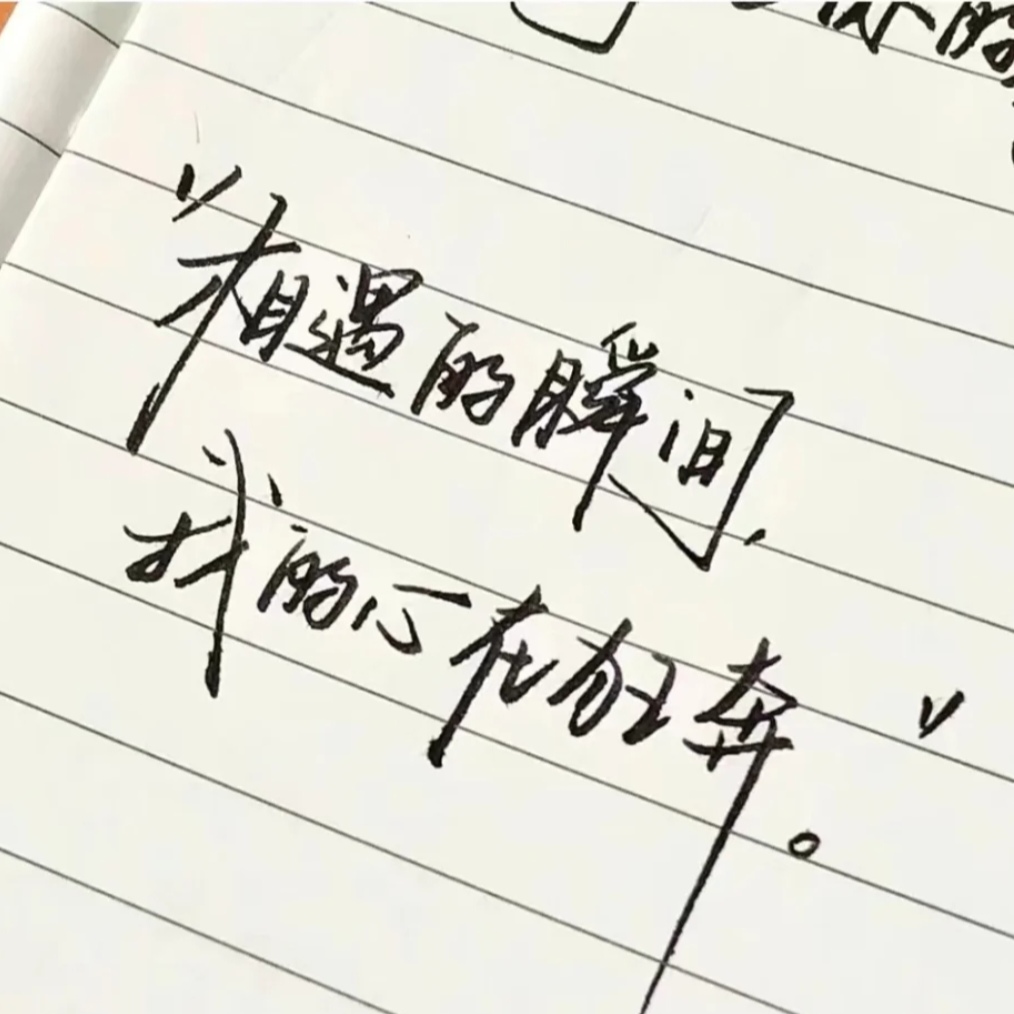 你的
"相遇的瞬间,
我的心在狂奔。"